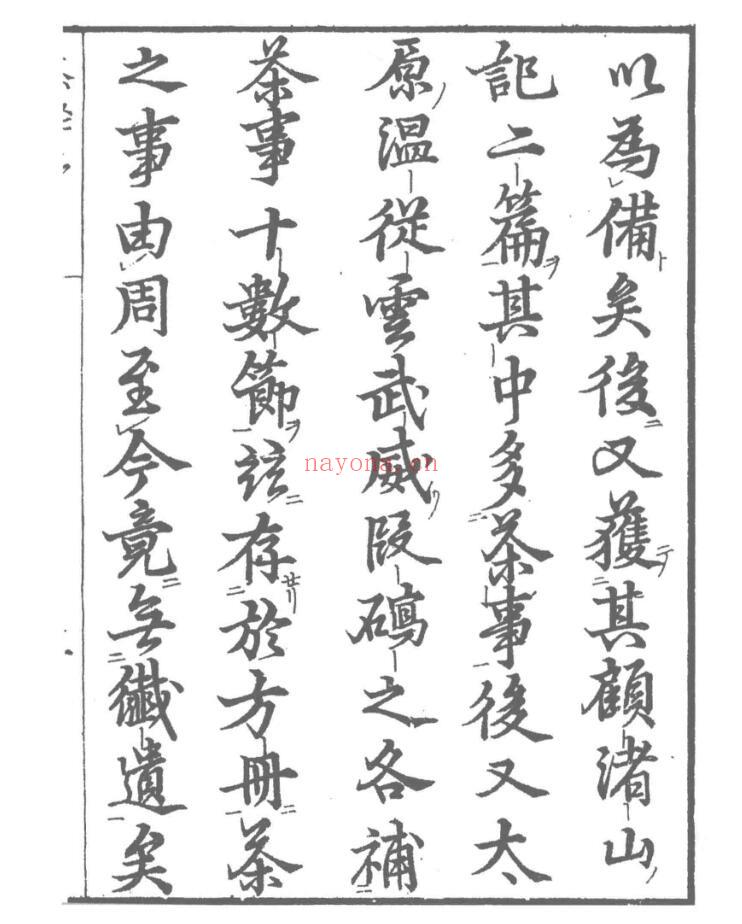 以為備矣後又獲其顧渚山
記二篇其中多茶事後又太
原温從雲武威段磶之各補
茶事十數節並存於方冊茶
之事由周至今竟無纎遺矣
nayona.cn